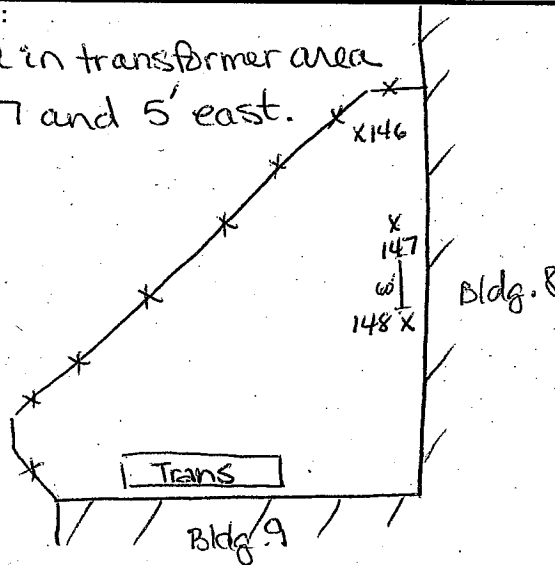 :
in transformer area
7 and 5' east.
X146
X
147
60'
148 X
Bldg. 8
Trans
Bldg. 9